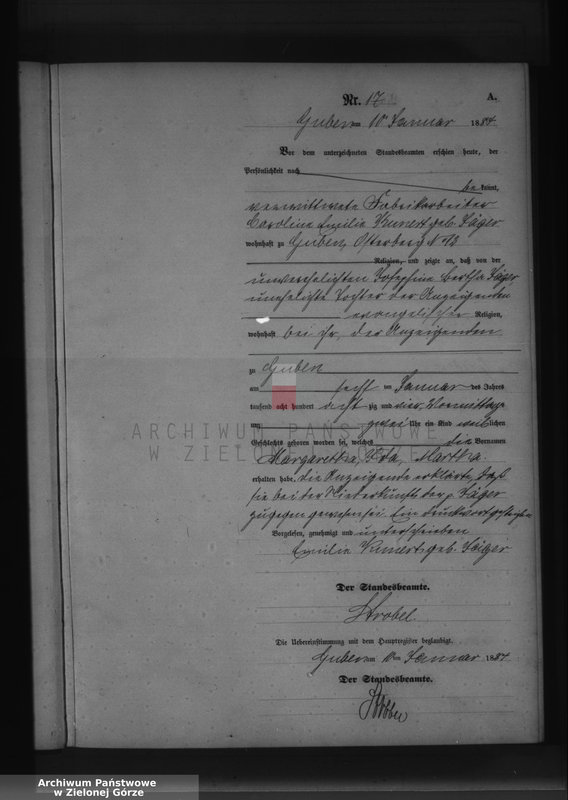 Nr. 17
A.
Guben am 10 Januar 1884
Vor dem unterzeichneten Standesbeamten erschien heute, der
Persönlichkeit nach
be kannt,
verwittwete Fabrikarbeiter
Caroline Emilie Kunert geb. Jäger
wohnhaft zu Guben, Osterberg N 13
Religion, und zeigte an, daß von der
unverehelichten Josephine Bertha Jäger
uneheliche Tochter der Anzeigenden
evangelischer Religion,
wohnhaft bei ihr, der Anzeigenden
zu Guben
am sechs ten Januar des Jahres
tausend acht hundert acht zig und vier Vormittags
um zwei Uhr ein Kind weib lichen
Geschlechts geboren worden sei, welches die Vornamen
Margaretha, Ida, Martha
erhalten habe. Die Anzeigende erklärte, daß
sie bei der Niederkunft der p. Jäger
zugegen gewesen sei. Ein Druckwort gestrichen
Vorgelesen, genehmigt und unterschrieben
Emilie Kunert geb. Jäger
Der Standesbeamte.
Strobel
Die Uebereinstimmung mit dem Hauptregister beglaubigt.
Guben am 10ten Januar 1884
Der Standesbeamte.
ARCHIWUM PAŃSTWOWE
W ZIELONEJ GÓRZE
Archiwum Państwowe
w Zielonej Górze